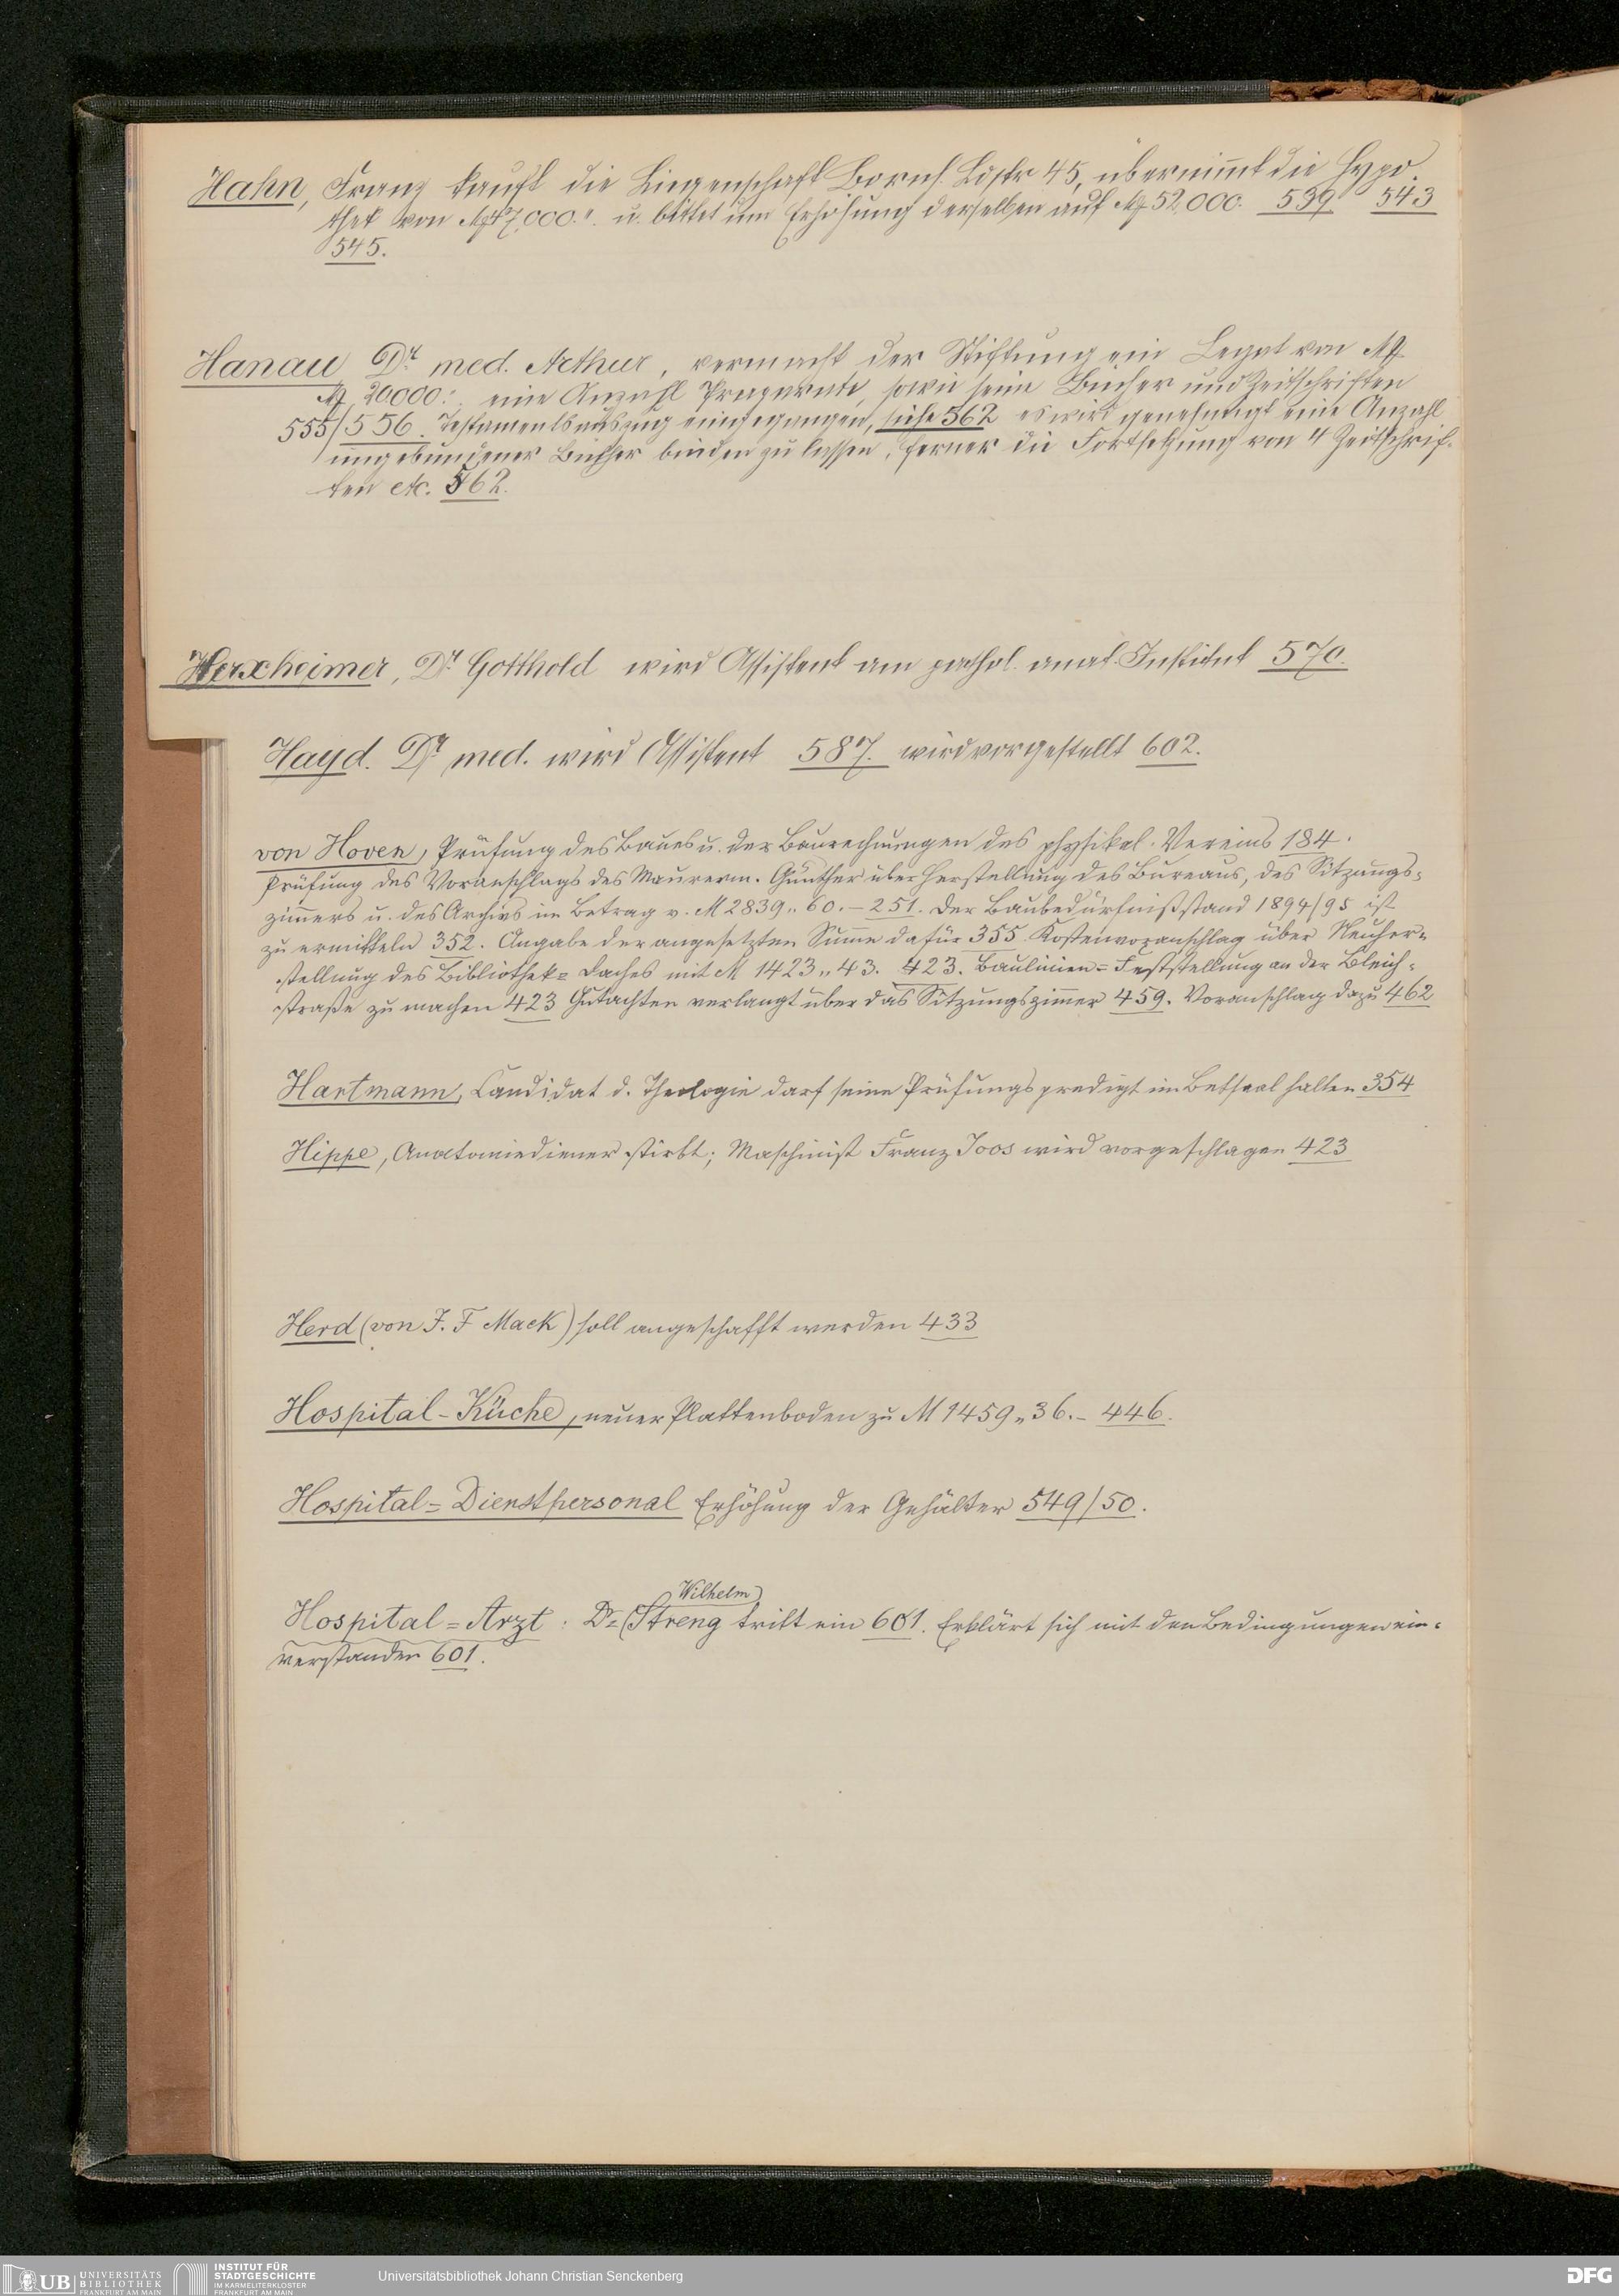 Hahn, Franz kauft die Liegenschaft Bornh. Ldstr 45, übernim̄t die Hypo-
thek von M 47,000.- u. bittet um Erhöhung derselben auf M 52,000. 539 543
545.
Hanau Dr. med. Arthur, vermacht der Stiftung ein Legat von M
M 20000:. eine Anzahl Präparate, sowie seine Bücher und Zeitschriften
555/556. Testamentsauszug eingegangen, siehe 562 es wird genehmigt eine Anzahl
ungebundener Bücher binden zu lassen, ferner die Fortsetzung von 4 Zeitschrif-
ten etc. 562.
Herxheimer, Dr. Gotthold wird Assistent am pathol. anat. Institut 570.
Hayd. Dr. med. wird Assistent 587. wird vorgestellt 602.
von Hoven, Prüfung des Baues u. der Baurechnungen des physikal. Vereins 184.
Prüfung des Voranschlags des Maurerm. Günther über Herstellung des Bureaus, des Sitzungs-
zim̄ers u. des Archivs im Betrag v. M 2839„60.–251. Der Baubedürfnißstand 1894/95 ist
zu ermitteln 352. Angabe der angesetzten Sum̄e dafür 355. Kostenvoranschlag über Neuher-
stellung des Bibliothek=Daches mit M 1423„43. 423. Baulinien=Feststellung an der Bleich-
straße zu machen 423 Gutachten verlangt über das Sitzungszim̄er 459. Voranschlag dazu 462
Hartmann, Candidat d. Theologie darf seine Prüfungspredigt im Betsaal halten 354
Hippe, Anatomiediener stirbt; Maschinist Franz Joos wird vorgeschlagen 423
Herd (von J. F Mack) soll angeschafft werden 433
Hospital-Küche, neuer Plattenboden zu M 1459„36.– 446.
Hospital=Dienstpersonal Erhöhung der Gehälter 549/50.
Wilhelm
Hospital=Arzt: Dr. Streng tritt ein 601. Erklärt sich mit den Bedingungen ein-
verstanden 601.
UB UNIVERSITÄTS BIBLIOTHEK FRANKFURT AM MAIN
INSTITUT FÜR STADTGESCHICHTE IM KARMELITERKLOSTER FRANKFURT AM MAIN
Universitätsbibliothek Johann Christian Senckenberg
DFG